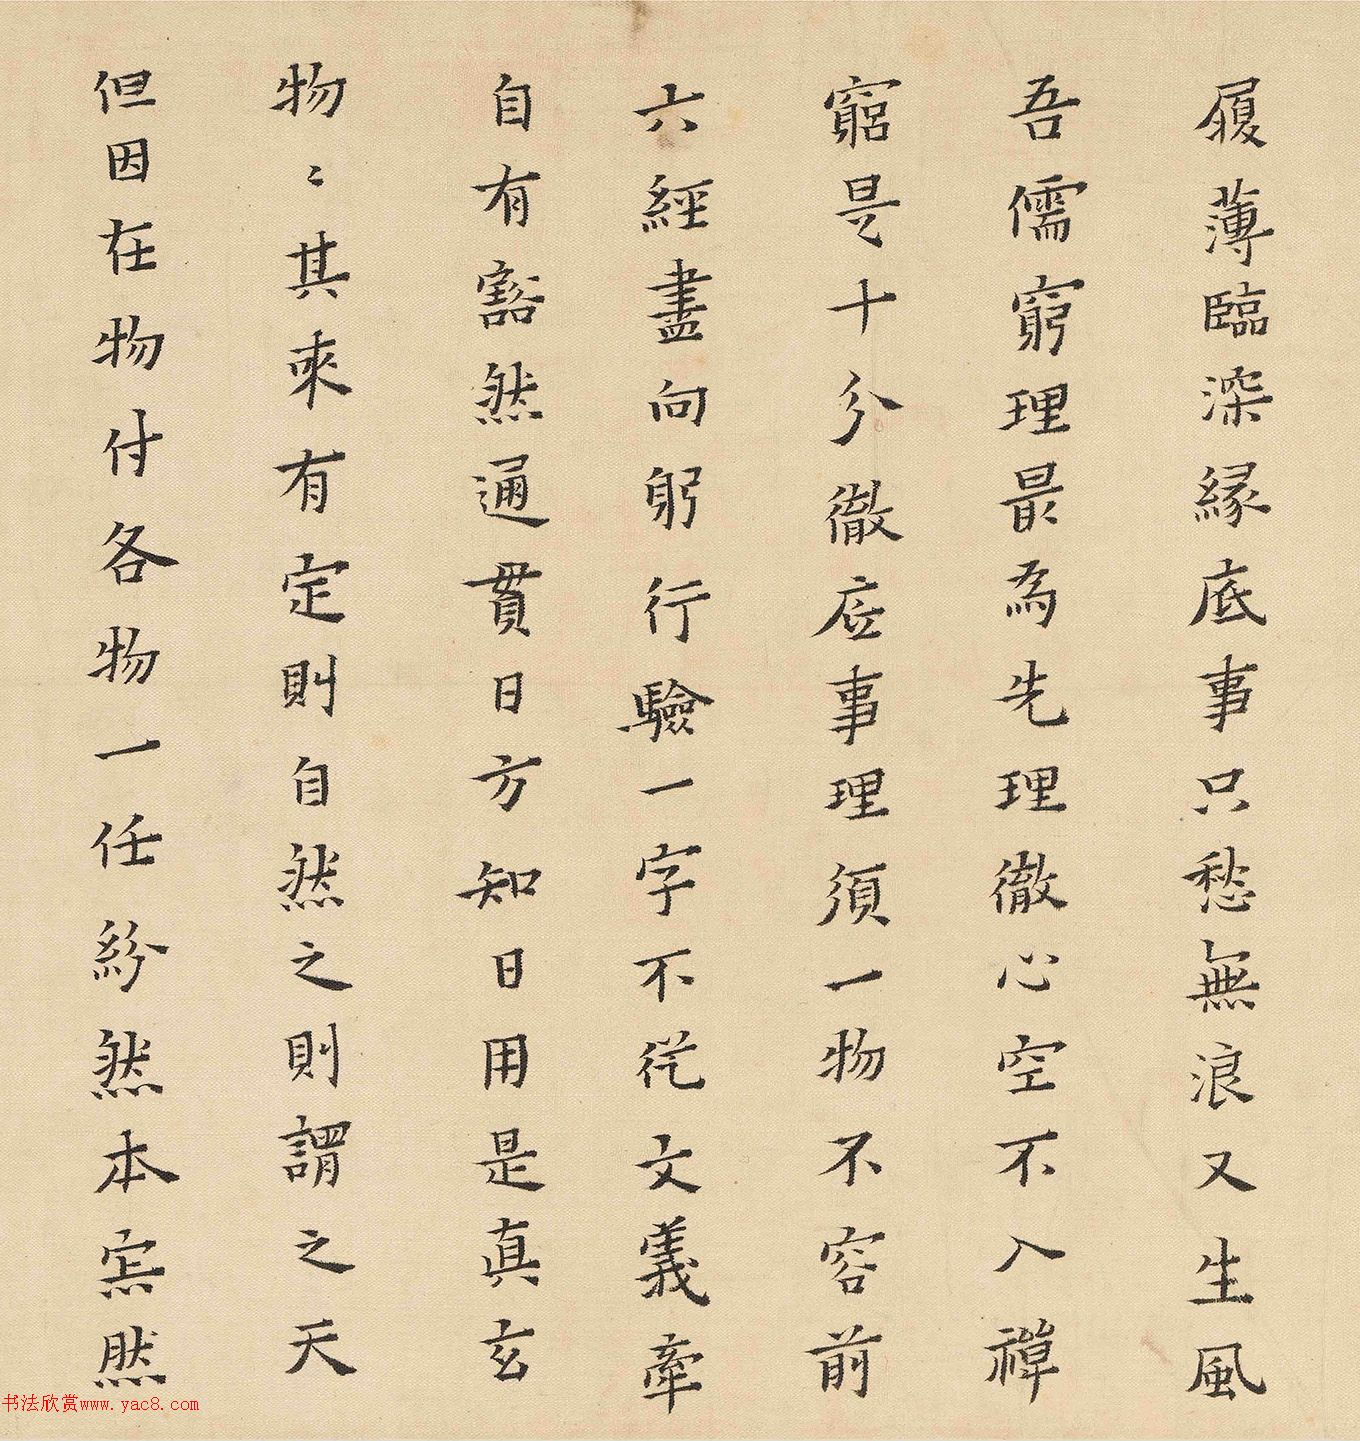 履薄臨深緣底事只愁無浪又生風
吾儒窮理最為先理徹心空不入禪
窮是十分徹底事理須一物不容前
六經盡向躬行驗一字不從文義牽
自有豁然通貫日方知日用是真玄
物〻其來有定則自然之則謂之天
但因在物付各物一任紛然本寂然
书法欣赏www.yac8.com